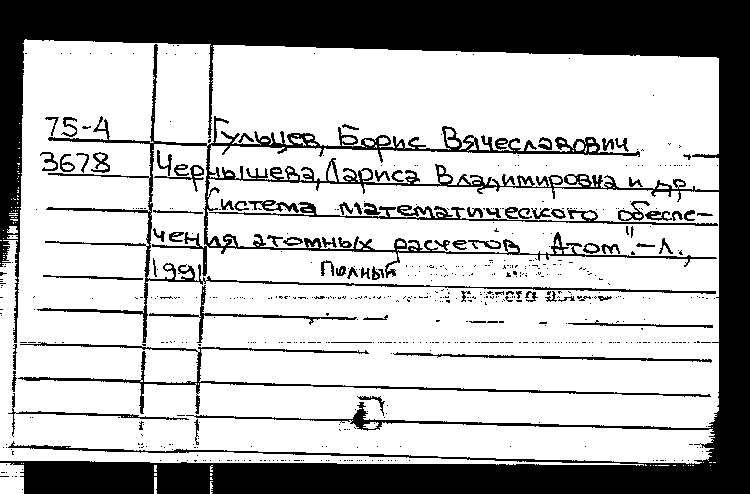 75-4 Гульцев, Борис Вячеславович
3678 Чернышева, Лариса Владимировна и др.
Система математического обеспе-
чения атомных расчетов „Атом“.-Л.,
1991. Полный